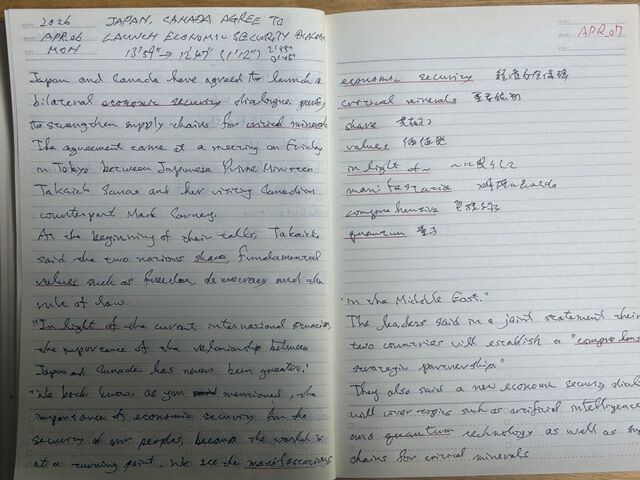 2026 JAPAN, CANADA AGREE TO
APR.06 LAUNCH ECONOMIC SECURITY DIALOGUE
MON 13'59"→ 12'47" (1'12")
Japan and Canada have agreed to launch a
bilateral economic security dialogue,
to strengthen supply chains for critical minerals
The agreement came at a meeting on Friday
in Tokyo between Japanese Prime Minister
Takaichi Sanae and her visiting Canadian
counterpart Mark Carney.
At the beginning of their talks, Takaichi
said the two nations share fundamental
values such as freedom, democracy and the
rule of law.
"In light of the current international situation,
the importance of the relationship between
Japan and Canada has never been greater."
"We both know, as you mentioned, the
importance of economic security for the
security of our peoples, because the world is
at a turning point. We see the manifestations
APR.07
economic security 経済安全保障
critical minerals 重要鉱物
share
values 価値観
in light of~ ~に照らして
manifestation
comprehensive 包括的
quantum 量子
in the Middle East."
The leaders said in a joint statement their
two countries will establish a "comprehensive
strategic partnership."
They also said a new economic security
will cover topics such as artificial intelligence
and quantum technology as well as
chains for critical minerals